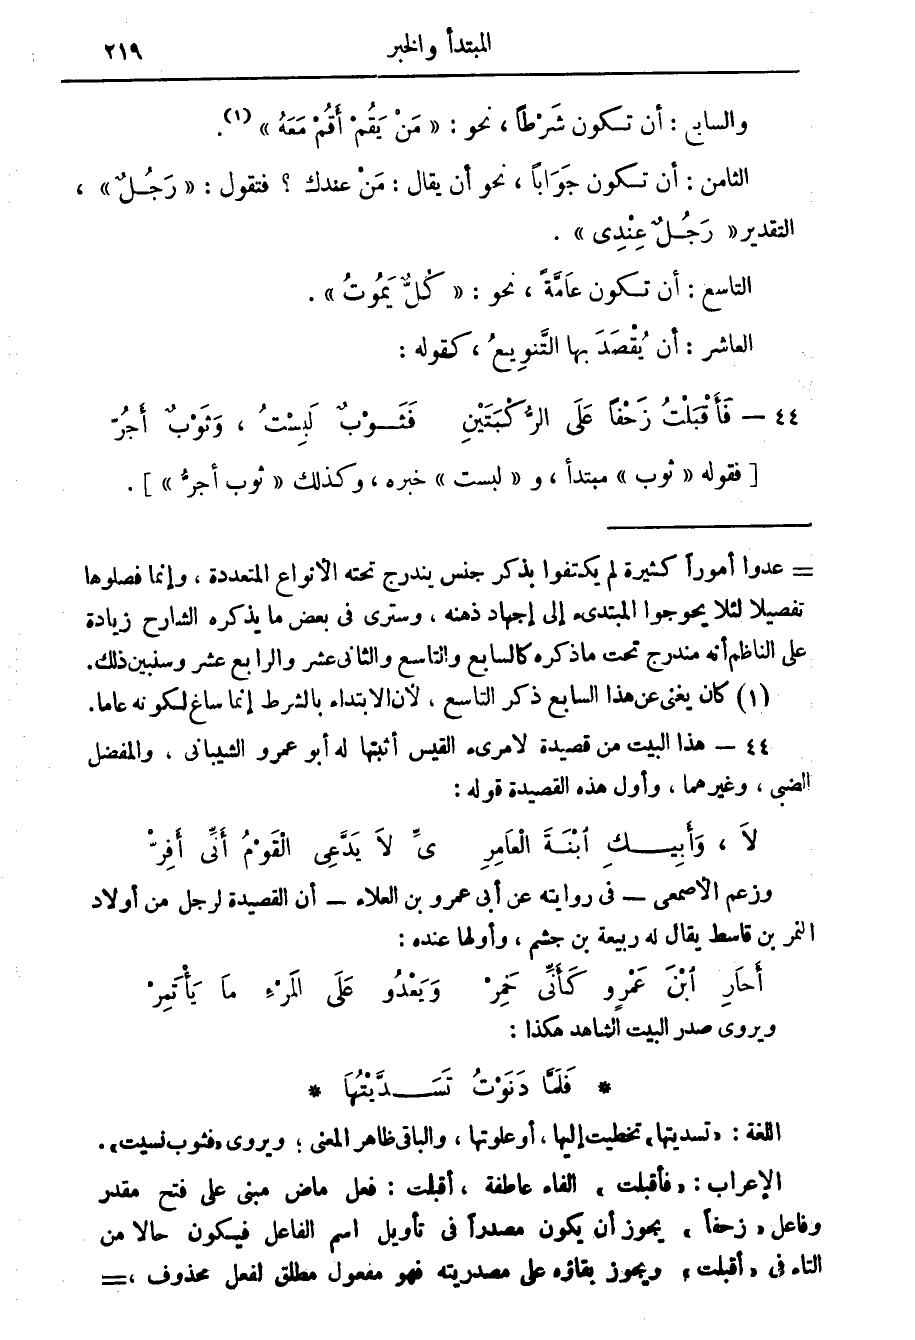 المبتدأ والخبر ٢١٩
والسابع : أن تكون شَرْطاً ، نحو : « مَنْ يَقُمْ أَقُمْ مَعَهُ » (١).
الثامن : أن تكون جَوَاباً ، نحو أن يقال : مَنْ عندك ؟ فتقول : « رَجُلٌ » ،
التقدير « رَجُلٌ عِنْدِى » .
التاسع : أن تكون عامَّةً ، نحو : « كُلٌّ يَمُوتُ » .
العاشر : أن يُقْصَدَ بها التَّنوِيعُ ، كقوله :
٤٤ — فَأَقْبَلْتُ زَحْفاً عَلَى الرُّكْبَتَيْنِ فَثَوْبٌ لَبِسْتُ ، وَثَوْبٌ أَجُرّ
[ فقوله « ثوب » مبتدأ ، و « لبست » خبره ، وكذلك « ثوب أجرُّ » ] .
= عدوا أموراً كثيرة لم يكتفوا بذكر جنس يندرج تحته الأنواع المتعددة ، وإنما فصلوها
تفصيلا لئلا يحوجوا المبتدىء إلى إجهاد ذهنه ، وسترى فى بعض ما يذكره الشارح زيادة
على الناظم أنه مندرج تحت ما ذكره كالسابع والتاسع والثانى عشر والرابع عشر وسنبين ذلك.
(١) كان يغنى عن هذا السابع ذكر التاسع ، لأن الابتداء بالشرط إنما ساغ لكونه عاما.
٤٤ — هذا البيت من قصيدة لامرىء القيس أثبتها له أبو عمرو الشيبانى ، والمفضل
الضبى ، وغيرهما ، وأول هذه القصيدة قوله :
لاَ ، وَأَبِيكِ ٱبْنَةَ الْعَامِرِ ىِّ لاَ يَدَّعِى الْقَوْمُ أَنِّى أَفِرّْ
وزعم الأصمعى — فى روايته عن أبى عمرو بن العلاء — أن القصيدة لرجل من أولاد
النمر بن قاسط يقال له ربيعة بن جشم ، وأولها عنده :
أَحَارِ ٱبْنَ عَمْرٍو كَأَنِّى خَمِرْ وَيَعْدُو عَلَى الْمَرْءِ مَا يَأْتَمِرْ
ويروى صدر البيت الشاهد هكذا :
* فَلَمَّا دَنَوْتُ تَسَدَّيْتُهَا *
اللغة : « تسديتها » تخطيت إليها ، أو علوتها ، والباقى ظاهر المعنى ؛ ويروى « فثوب نسيت » .
الإعراب : « فأقبلت » الفاء عاطفة ، أقبلت : فعل ماض مبنى على فتح مقدر
وفاعل « زحفاً » يجوز أن يكون مصدراً فى تأويل اسم الفاعل فيكون حالا من
التاء فى « أقبلت » ويجوز بقاؤه على مصدريته فهو مفعول مطلق لفعل محذوف ، =